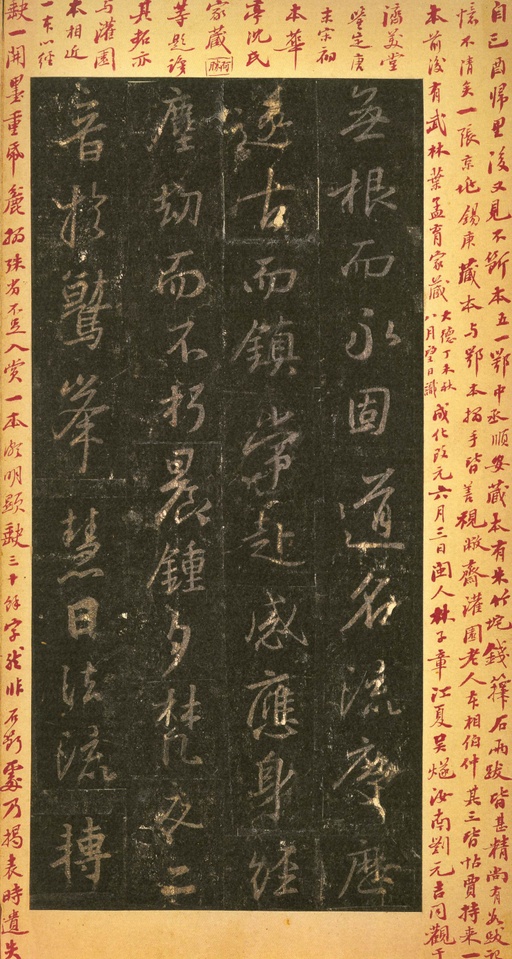 自己酉歸里後又見不斷本五一鄂中丞順安藏本有朱竹垞錢籜石兩跋皆甚精尚有跋記
憶不清矣一張京兆錫庚藏本與鄂本搨手皆善視齋灌園老人本相伯仲其三皆帖賈持來一
本前後有武林葉孟育家藏大德丁未秋八月望日識成化改元六月三日閩人林子章江夏吳燧汝南劉元吉同觀于
濟美堂
鑒定庚
末宗初
本華
亭沈氏
家藏
等題跋
其拓亦
與灌園
本相近
一本以經
缺一開墨重紙麄搨殊劣不足入賞一本明顯缺三十餘字然非石斷處乃揭表時遺失
無根而永固道名流慶歷
遂古而鎮常赴感應身經
塵劫而不朽晨鍾夕梵交二
音於鷲峯慧日法流轉